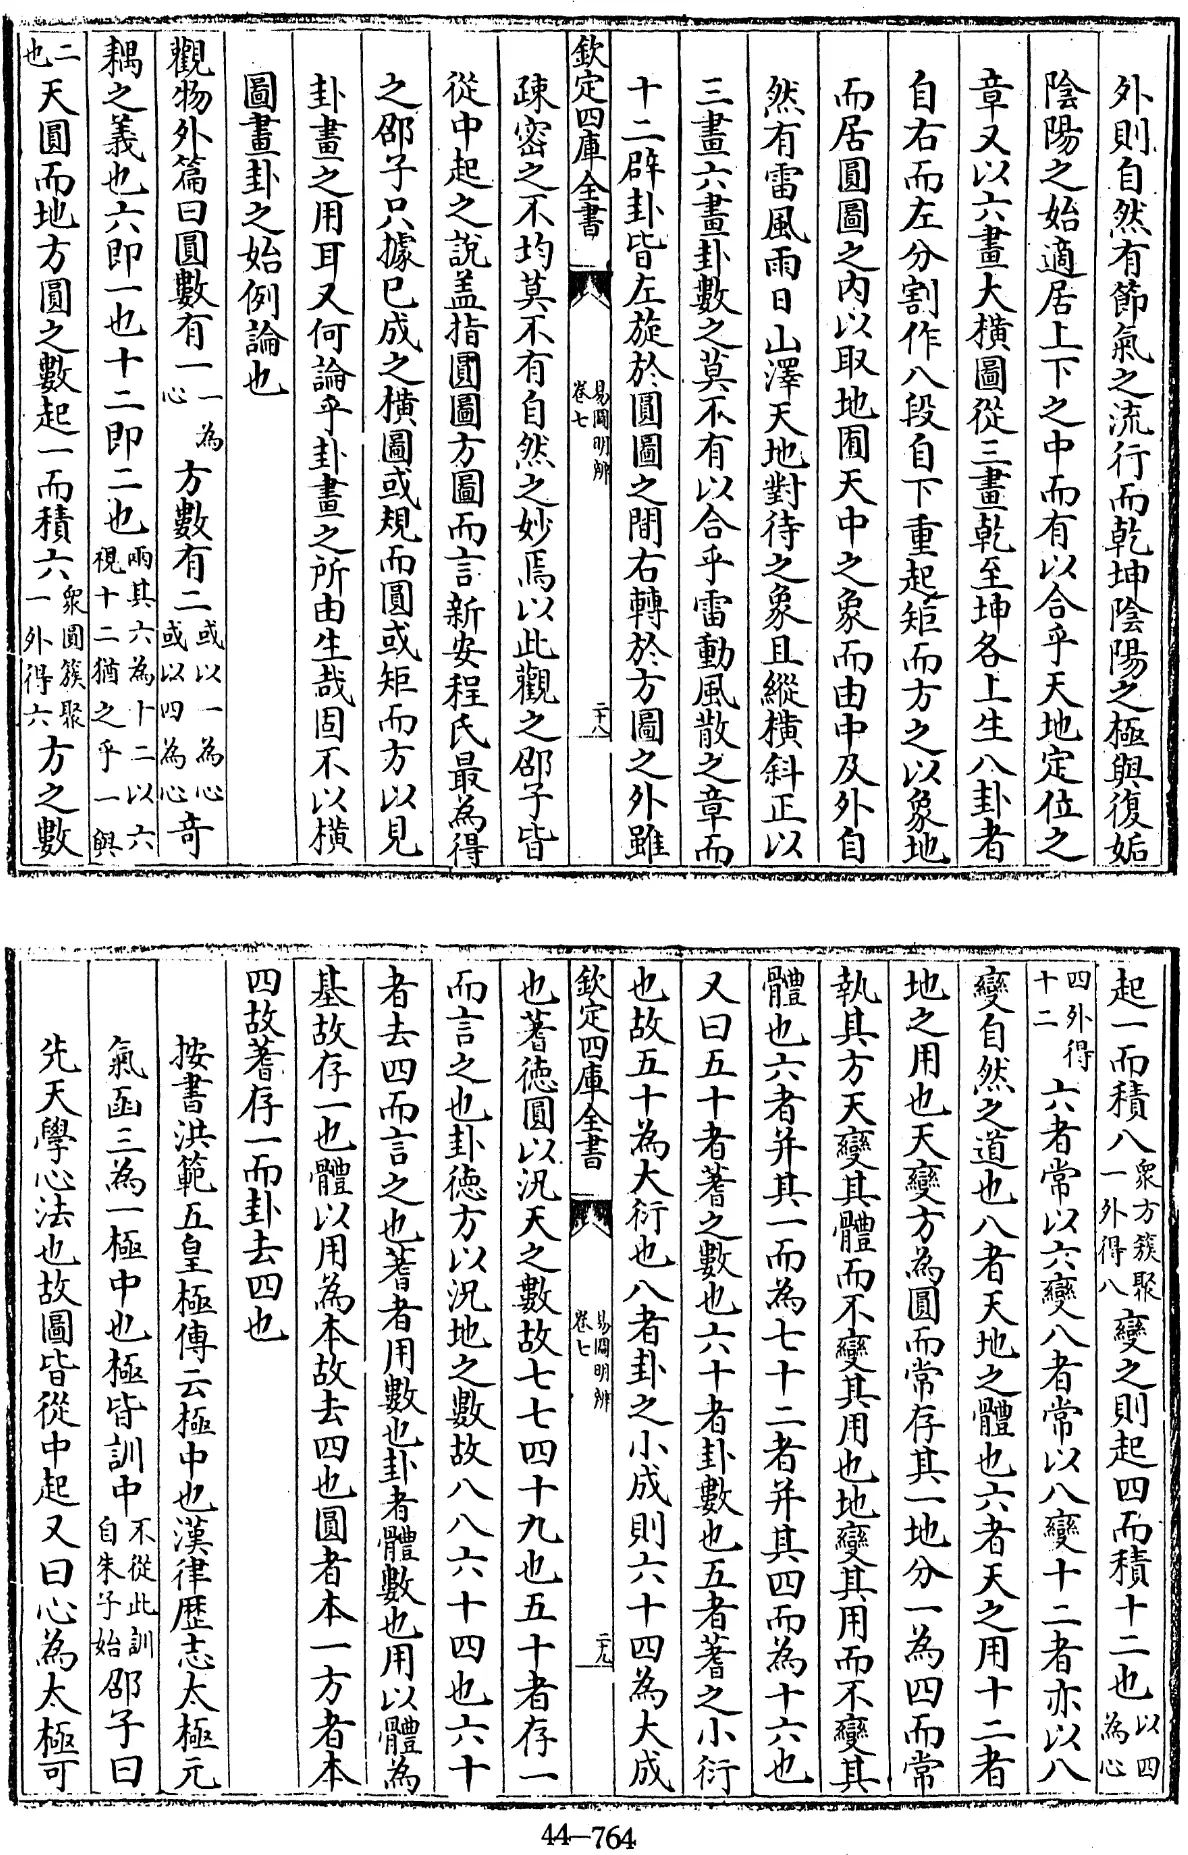 外則自然有節氣之流行而乾坤陰陽之極與復姤
陰陽之始適居上下之中而有以合乎天地定位之
章又以六畫大橫圖從三畫乾至坤各上生八卦者
自右而左分割作八段自下重起矩而方之以象地
而居圓圖之内以取地囿天中之象而由中及外自
然有雷風雨日山澤天地對待之象且縱橫斜正以
三畫六畫卦數之莫不有以合乎雷動風散之章而
十二辟卦皆左旋於圓圖之間右轉於方圖之外雖
欽定四庫全書 易圖明辨 卷七 二十八
疎密之不均莫不有自然之妙焉以此觀之邵子皆
從中起之說盖指圓圖方圖而言新安程氏最為得
之邵子只據已成之橫圖或規而圓或矩而方以見
卦畫之用耳又何論乎卦畫之所由生哉固不以橫
圖畫卦之始例論也
觀物外篇曰圓數有一一為心方數有二或以一為心或以四為心奇
耦之義也六即一也十二即二也兩其六為十二以六視十二猶之乎一與
二也天圓而地方圓之數起一而積六眾圓簇聚一外得六方之數
起一而積八衆方簇聚一外得八變之則起四而積十二也以四為心
四外得十二六者常以六變八者常以八變十二者亦以八
變自然之道也八者天地之體也六者天之用十二者
地之用也天變方為圓而常存其一地分一為四而常
執其方天變其體而不變其用也地變其用而不變其
體也六者并其一而為七十二者并其四而為十六也
又曰五十者蓍之數也六十者卦數也五者蓍之小衍
也故五十為大衍也八者卦之小成則六十四為大成
欽定四庫全書 易圖明辨 卷七 二十九
也蓍德圓以況天之數故七七四十九也五十者存一
而言之也卦德方以況地之數故八八六十四也六十
者去四而言之也蓍者用數也卦者體數也用以體為
基故存一也體以用為本故去四也圓者本一方者本
四故蓍存一而卦去四也
按書洪範五皇極傳云極中也漢律歷志太極元
氣函三為一極中也極皆訓中不從此訓自朱子始邵子曰
先天學心法也故圖皆從中起又曰心為太極可
44—764